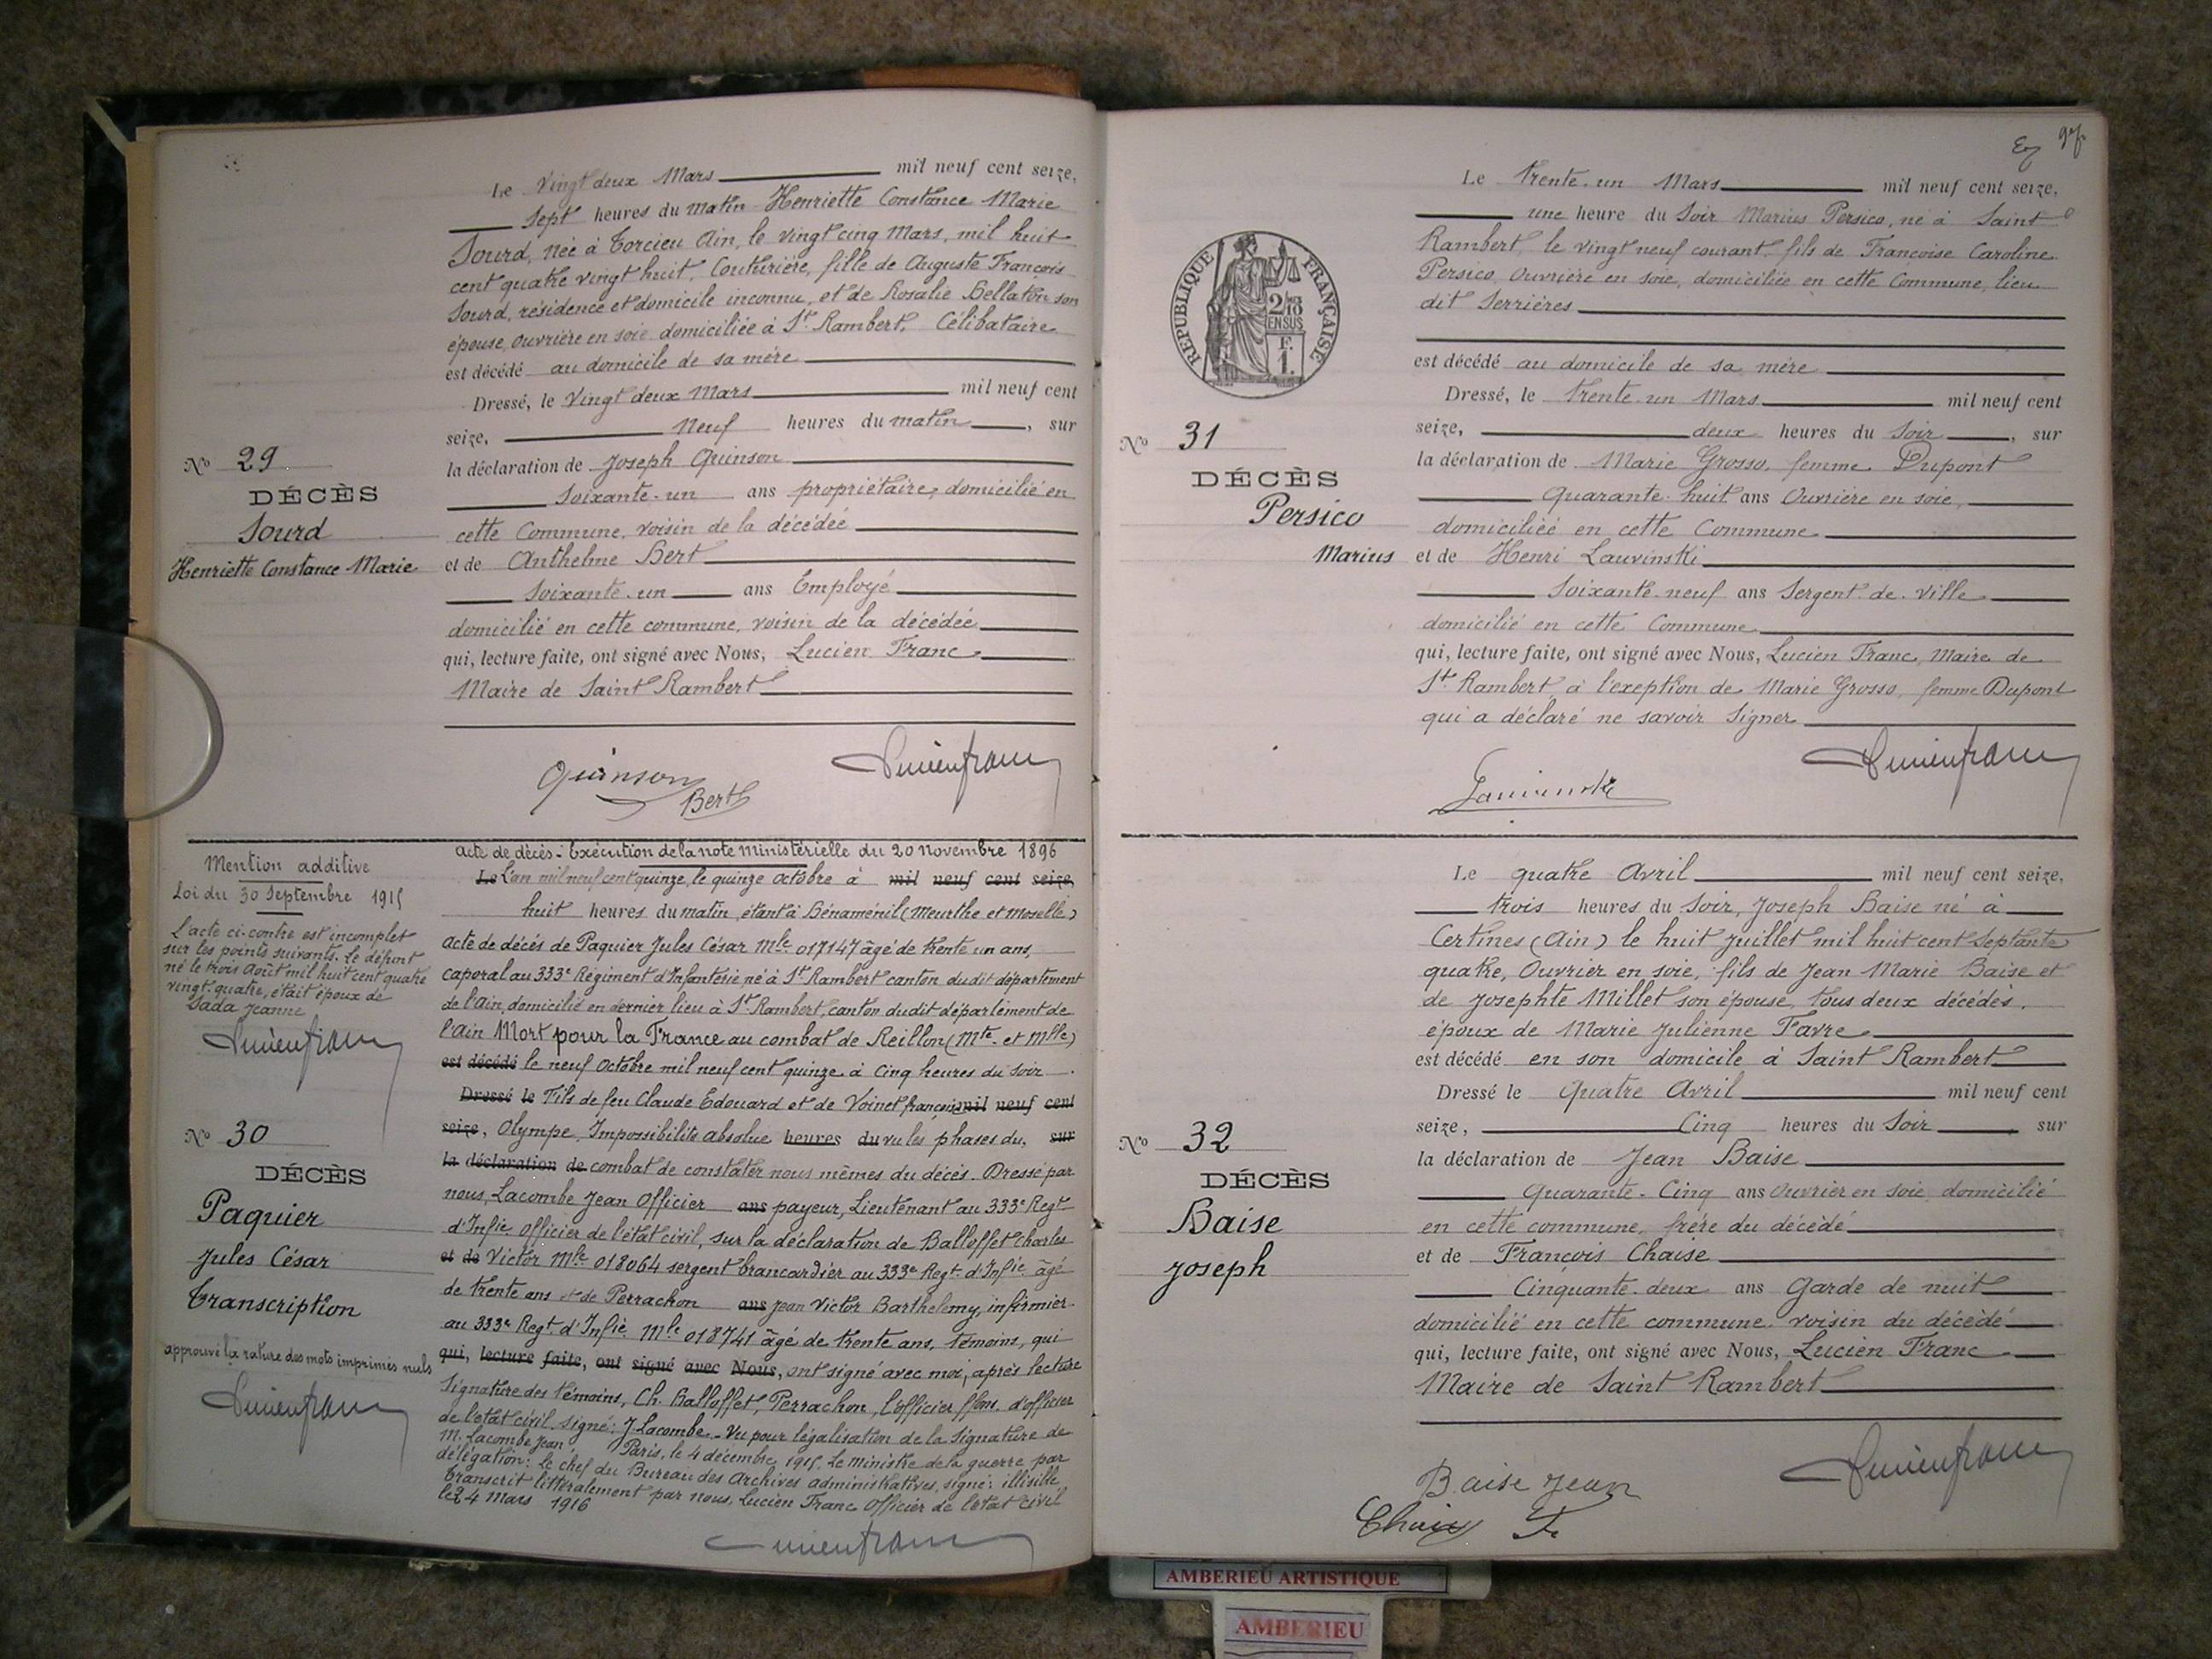 Le Vingt deux Mars mil neuf cent seize,
Sept heures du matin Henriette Constance Marie
Sourd, née à Torcieu Ain, le vingt cinq Mars, mil huit
cent quatre vingt huit, Couturière, fille de Auguste François
Sourd, résidence et domicile inconnu, et de Rosalie Bellaton son
épouse, ouvrière en soie domiciliée à St Rambert, Célibataire
est décédé au domicile de sa mère
Dressé, le Vingt deux Mars mil neuf cent
seize, Neuf heures du matin, sur
la déclaration de Joseph Quinson
Soixante-un ans propriétaire, domicilié en
cette Commune, voisin de la décédée
et de Anthelme Bert
Soixante-un ans Employé
domicilié en cette commune, voisin de la décédée
qui, lecture faite, ont signé avec Nous, Lucien Franc
Maire de Saint Rambert
Quinson
Bert
Lucien franc
No 29
DÉCÈS
Sourd
Henriette Constance Marie
Mention additive
Loi du 30 Septembre 1915
L'acte ci-contre est incomplet
sur les points suivants. Le défunt
né le trois Août mil huit cent quatre
vingt-quatre, était époux de
Dada Jeanne
Lucien franc
No 30
DÉCÈS
Paquier
Jules César
Transcription
approuvé la rature des mots imprimés nuls
Lucien franc
Acte de décès - Exécution de la note ministérielle du 20 novembre 1896
Le L'an mil neuf cent quinze, le quinze octobre à mil neuf cent seize,
huit heures du matin, étant à Bénaménil (Meurthe et Moselle)
acte de décès de Paquier Jules César Mle 017147 âgé de trente un ans,
caporal au 333e Régiment d'Infanterie né à St Rambert canton dudit département
de l'Ain, domicilié en dernier lieu à St Rambert, canton dudit département de
l'Ain Mort pour la France au combat de Reillon (Mte et Mlle)
est décédé le neuf octobre mil neuf cent quinze à cinq heures du soir.
Dressé le Fils de feu Claude Edouard et de Voinet françoise mil neuf cent
seize, Olympe, Impossibilité absolue heures du vu les phases du, sur
la déclaration de combat de constater nous mêmes du décès. Dressé par
nous, Lacombe Jean Officier ans payeur, Lieutenant au 333e Regt
d'Infie Officier de l'état civil, sur la déclaration de Balloffet Charles
et de Victor Mle 018064 sergent brancardier au 333e Regt d'Infie âgé
de trente ans et de Perrachon ans Jean Victor Barthelemy, infirmier
au 333e Regt d'Infie Mle 018741 âgé de trente ans, témoins, qui
qui, lecture faite, ont signé avec Nous, ont signé avec moi, après lecture
Signature des témoins, Ch. Balloffet, Perrachon, l'officier ffons d'officier
de l'état civil signé: J. Lacombe - Vu pour légalisation de la Signature de
M. Lacombe Jean, Paris, le 4 décembre 1915. Le ministre de la guerre par
délégation: le chef du Bureau des Archives administratives, signé: illisible
Transcrit littéralement par nous, Lucien Franc Officier de l'état civil
le 24 Mars 1916
Lucien franc
Le Trente-un Mars mil neuf cent seize,
une heure du Soir Marius Persico, né à Saint
Rambert, le vingt neuf courant, fils de Françoise Caroline
Persico, Ouvrière en soie, domiciliée en cette Commune, lieu
dit Serrières
est décédé au domicile de sa mère
Dressé, le Trente-un Mars mil neuf cent
seize, deux heures du Soir, sur
la déclaration de Marie Grosso, femme Dupont
quarante-huit ans Ouvrière en soie,
domiciliéé en cette Commune
et de Henri Lauvinski
Soixante-neuf ans Sergent de ville
domicilié en cette Commune
qui, lecture faite, ont signé avec Nous, Lucien Franc, Maire de
St Rambert, à l'exeption de Marie Grosso, femme Dupont
qui a déclaré ne savoir Signer
Lauvinski
Lucien franc
RÉPUBLIQUE FRANÇAISE
2/10
EN SUS
F.
1.
No 31
DÉCÈS
Persico
Marius
Le quatre Avril mil neuf cent seize,
trois heures du Soir, Joseph Baise né à
Certines (Ain) le huit Juillet mil huit cent septante
quatre, Ouvrier en soie, fils de Jean Marie Baise et
de Josephte Millet son épouse, tous deux décédés.
époux de Marie Julienne Favre
est décédé en son domicile à Saint Rambert
Dressé le Quatre Avril mil neuf cent
seize, Cinq heures du Soir sur
la déclaration de Jean Baise
Quarante-Cinq ans Ouvrier en soie, domicilié
en cette commune, frère du décédé
et de François Chaise
Cinquante-deux ans Garde de nuit
domicilié en cette commune voisin du décédé
qui, lecture faite, ont signé avec Nous, Lucien Franc
Maire de Saint Rambert
Baise Jean
Lucien franc
No 32
DÉCÈS
Baise
Joseph
AMBERIEU ARTISTIQUE
AMBERIEU